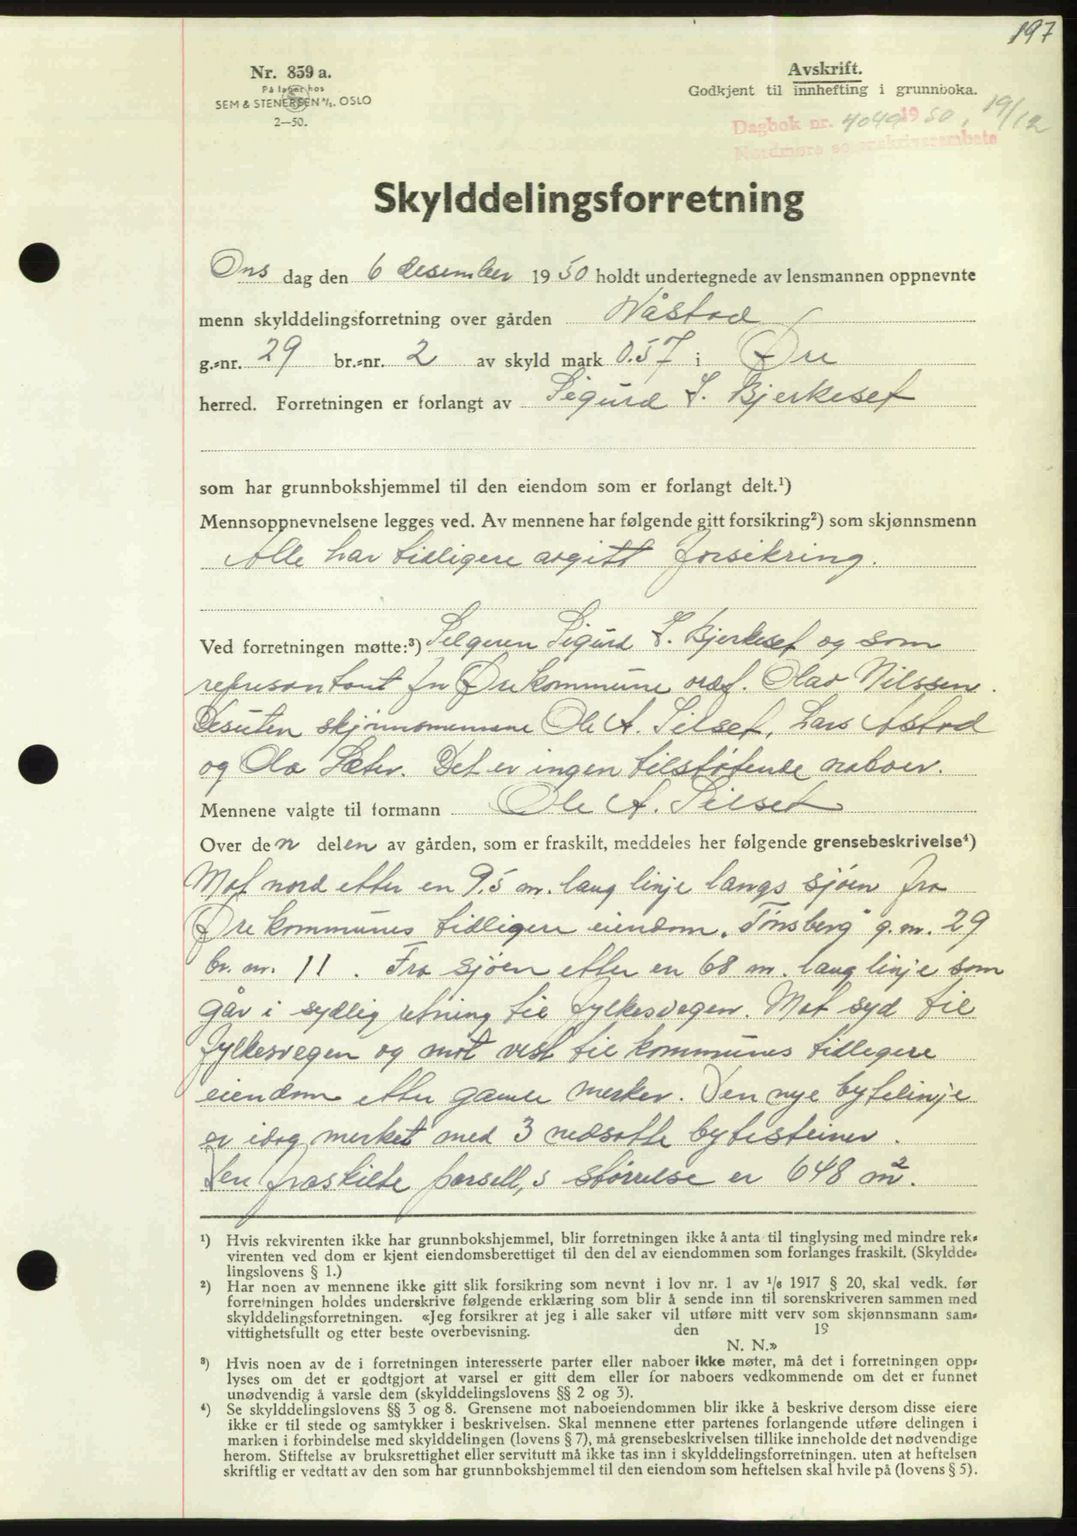 197
Nr. 859 a.
På lager hos
SEM & STENERSEN A/S. OSLO
2—50.
Avskrift.
Godkjent til innhefting i grunnboka.
Dagbok nr. 4049 1950, 19/12
Nordmøre sorenskriverembete
Skylddelingsforretning
Ons dag den 6 desember 1950 holdt undertegnede av lensmannen oppnevnte
menn skylddelingsforretning over gården Våstad
g.-nr. 29 br.-nr. 2 av skyld mark 0.57 i Øre
herred. Forretningen er forlangt av Sigurd S. Bjerkeset
som har grunnbokshjemmel til den eiendom som er forlangt delt.¹)
Mennsoppnevnelsene legges ved. Av mennene har følgende gitt forsikring²) som skjønnsmenn
Alle har tidligere avgitt forsikring.
Ved forretningen møtte:³) Selgeren Sigurd S. Bjerkeset og som
represontant for Øre kommune ordf. Olav Nilssen.
Desuten skjønnsmennene Ole A. Silset, Lars Astad
og Ola Sæter. Det er ingen tilstøtende naboer.
Mennene valgte til formann Ole A. Silset
Over den delen av gården, som er fraskilt, meddeles her følgende grensebeskrivelse⁴)
Mot nord etter en 9,5 m. lang linje langs sjøen fra
Øre kommunes tidligere eiendom "Tønsberg" g.nr. 29
br. nr. 11. Fra sjøen etter en 68 m. lang linje som
går i sydlig retning til fylkesvegen. Mot syd til
fylkesvegen og mot vest til kommunes tidligere
eiendom etter gamle merker. Den nye bytelinje
er idag merket med 3 nedsatte bytesteiner.
Den fraskilte parsell,s størrelse er 648 m².
¹) Hvis rekvirenten ikke har grunnbokshjemmel, blir forretningen ikke å anta til tinglysing med mindre rek-
virenten ved dom er kjent eiendomsberettiget til den del av eiendommen som forlanges fraskilt. (Skyldde-
lingslovens § 1.)
²) Har noen av mennene ikke gitt slik forsikring som nevnt i lov nr. 1 av 1/6 1917 § 20, skal vedk. før
forretningen holdes underskrive følgende erklæring som blir å sende inn til sorenskriveren sammen med
skylddelingsforretningen. «Jeg forsikrer at jeg i alle saker vil utføre mitt verv som skjønnsmann sam-
vittighetsfullt og etter beste overbevisning. den 19
N. N.»
³) Hvis noen av de i forretningen interesserte parter eller naboer ikke møter, må det i forretningen opp-
lyses om det er godtgjort at varsel er gitt dem eller for naboers vedkommende om det er funnet
unødvendig å varsle dem (skylddelingslovens §§ 2 og 3).
⁴) Se skylddelingslovens §§ 3 og 8. Grensene mot naboeiendommen blir ikke å beskrive dersom disse eiere
ikke er til stede og samtykker i beskrivelsen. Skal mennene etter partenes forlangende utføre delingen i
marken i forbindelse med skylddelingen (lovens § 7), må grensebeskrivelsen tillike inneholde det nødvendige
herom. Stiftelse av bruksrettighet eller servitutt må ikke tas inn i skylddelingsforretningen. uten at heftelsen
skriftlig er vedtatt av den som har grunnbokshjemmel til den eiendom som heftelsen skal hvile på (lovens § 5).